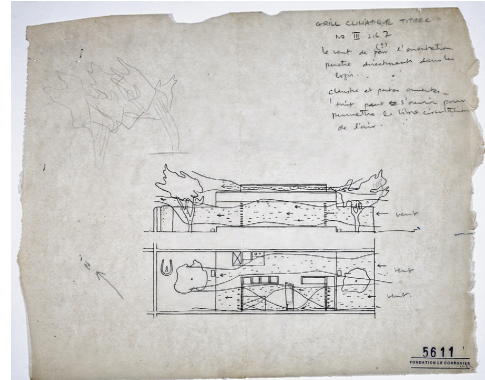 GRILL CLIMATIQUE TITREE
No III 2.6.7
le vent de l'orientation
penetre directement dans les
logis..
claustra et portes ouvertes
toit peut s'ouvrir pour
permettre la libre circulation
de l'air.
vent
vent
vent.
N
5611
FONDATION LE CORBUSIER